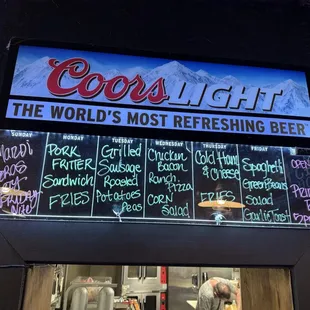 Coors LIGHT
THE WORLD'S MOST REFRESHING BEER
SUNDAY
MONDAY
TUESDAY
WEDNESDAY
THURSDAY
FRIDAY
PORK
FRITTER
Sandwich
FRIES
Grilled
Sausage
Roasted
Potatoes
Peas
Chicken
Bacon
Ranch
Pizza
CORN
Salad
Cold Ham
& Cheese
FRIES
Spaghetti
Green Beans
Salad
Garlic Toast